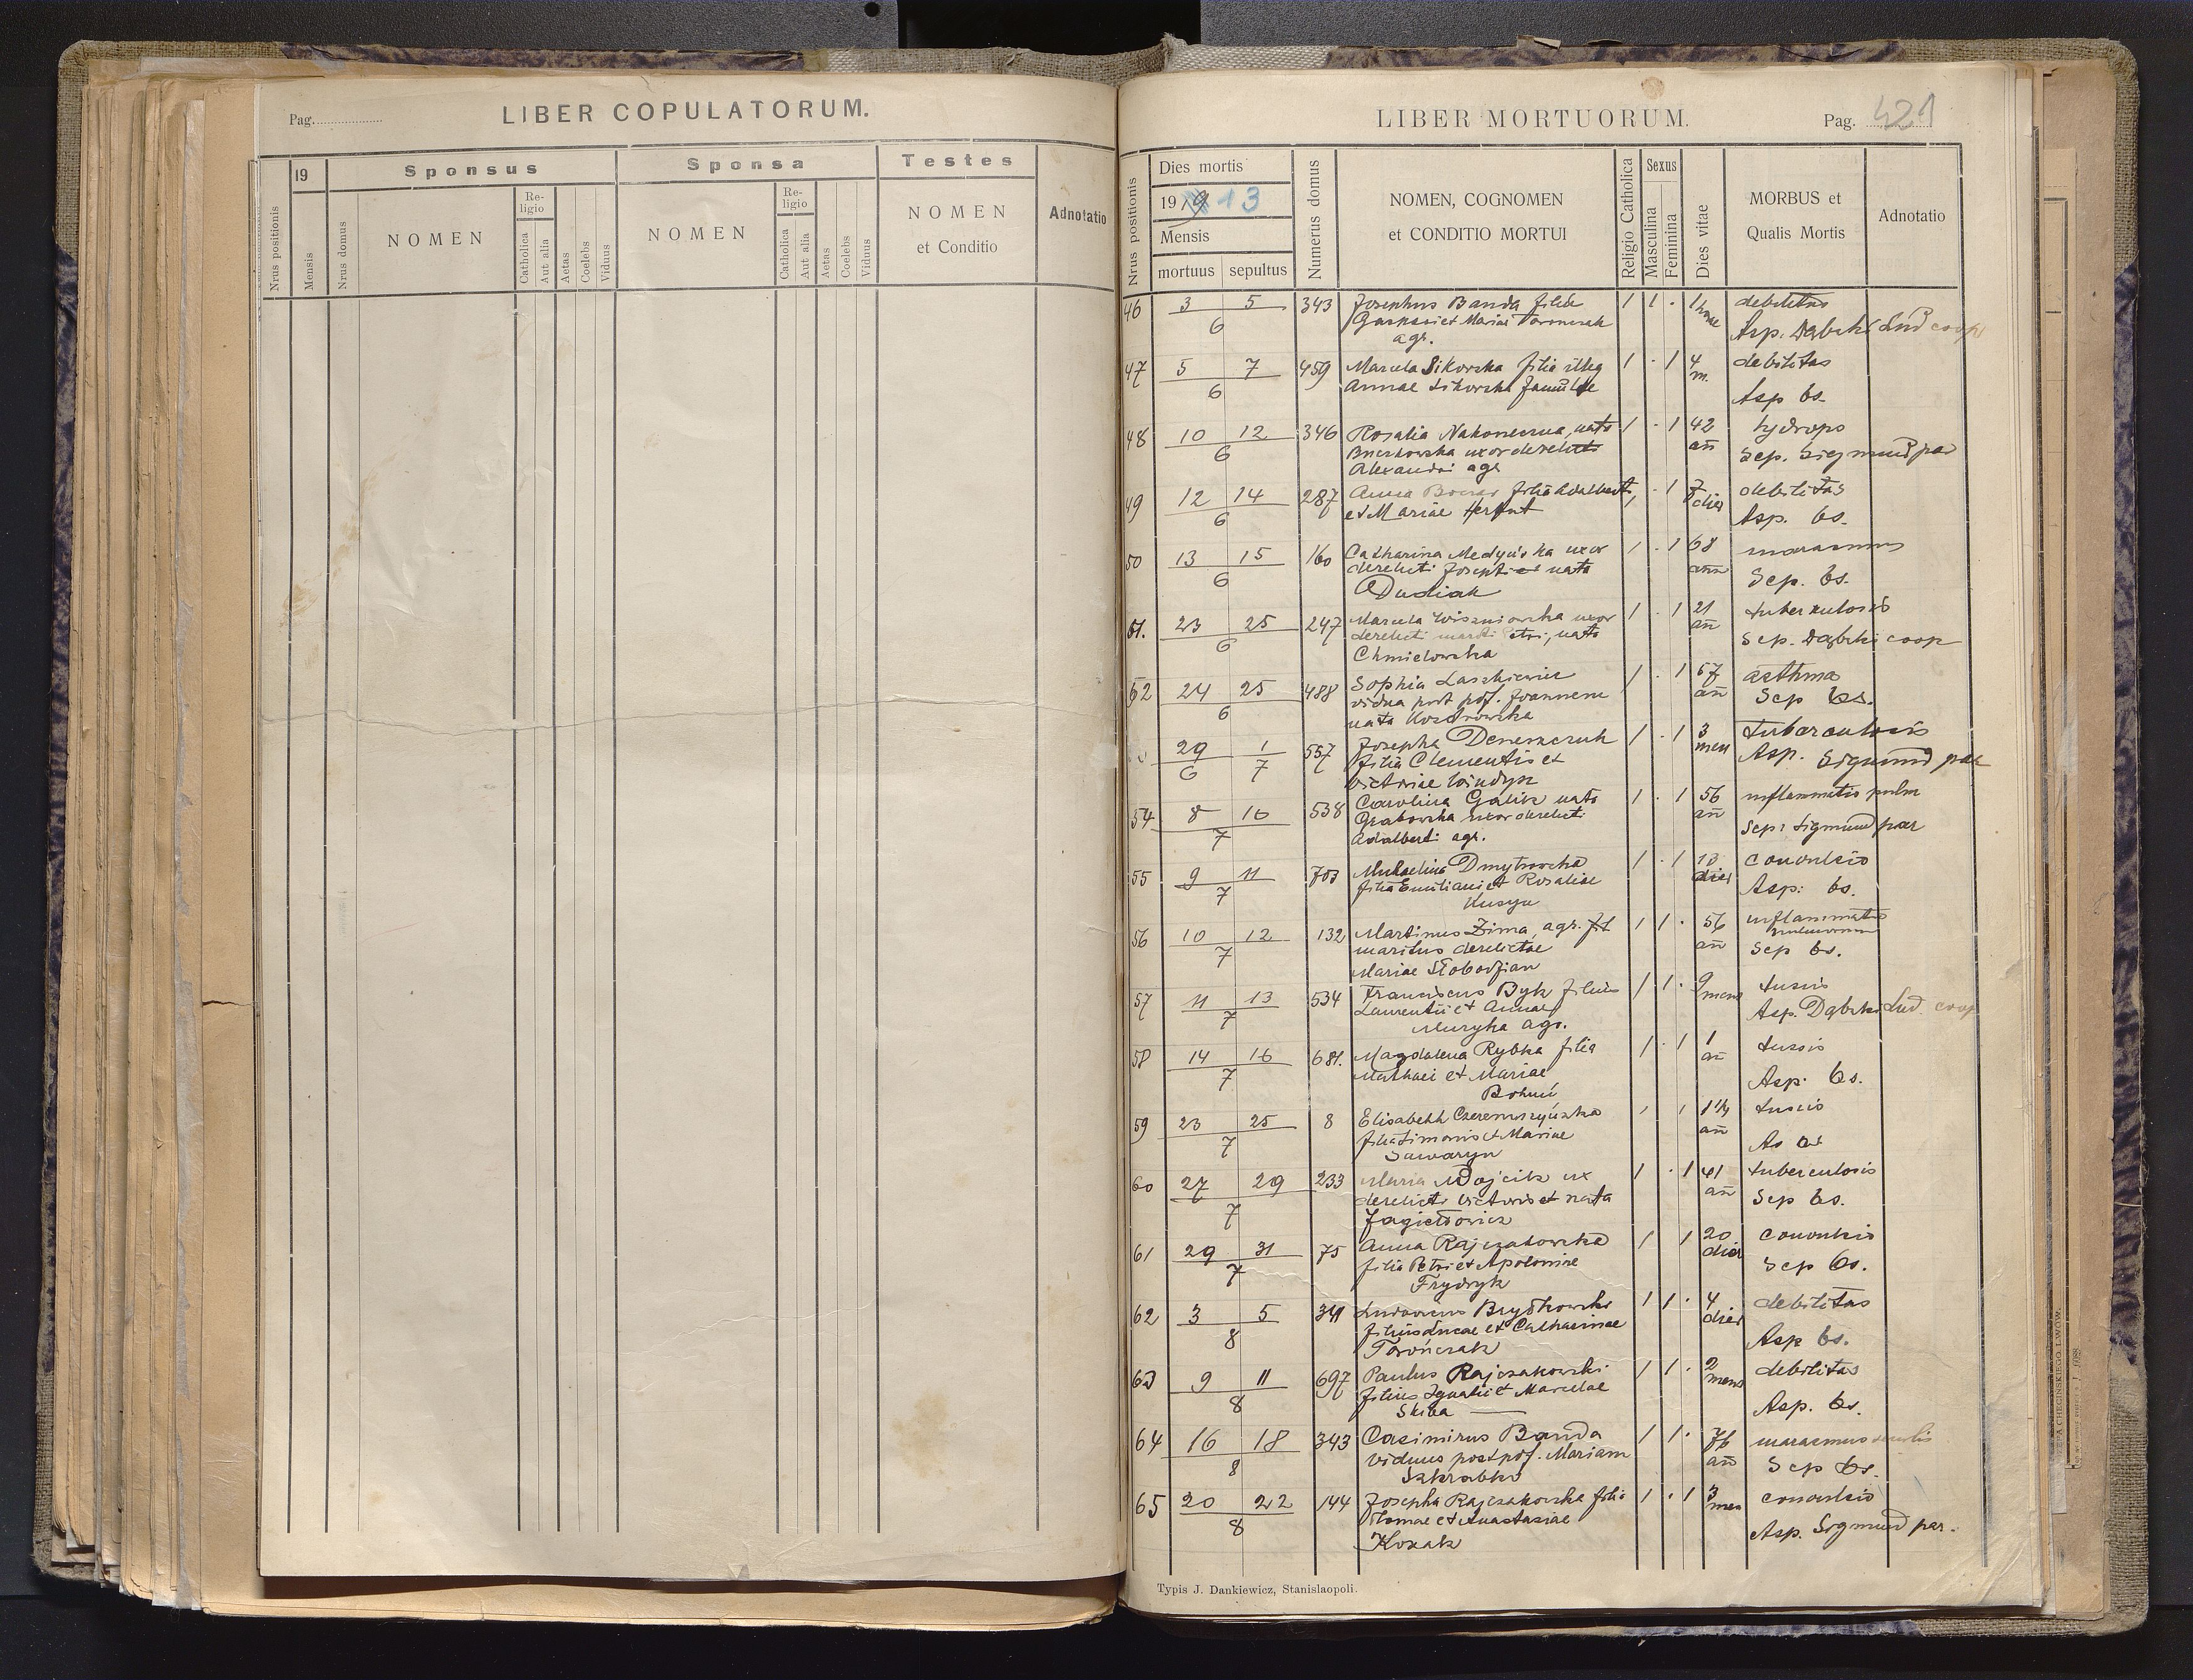 Pag.
LIBER COPULATORUM.
19
Sponsus
Sponsa
Testes
Nrus positionis
Mensis
Nrus domus
NOMEN
Religio
Catholica
Aut alia
Aetas
Coelebs
Viduus
NOMEN
Religio
Catholica
Aut alia
Aetas
Coelebs
Viduus
NOMEN
et Conditio
Adnotatio
LIBER MORTUORUM.
Pag. 421
Nrus positionis
Dies mortis
1913
Mensis
mortuus sepultus
Numerus domus
NOMEN, COGNOMEN
et CONDITIO MORTUI
Religio Catholica
Sexus
Masculina
Feminina
Dies vitae
MORBUS et
Qualis Mortis
Adnotatio
46 3 5 343 Josephus Banda filius 1 1 . debilitas
6 et Mariae Torończak Asp. Dąbski Lud coop
agr.
47 5 7 459 Marcela Sikorska filia illeg 1 . 1 4 debilitas
6 Annae Sikorska famulae m. Asp bs.
48 10 12 346 Rosalia Nakoneczna nata 1 . 1 42 hydrops
6 uxor derelicti an Sep. Sigmund par
Alexandri agr
49 12 14 287 Anna filia Adalberti . 1 7 debilitas
6 et Mariae dier Asp. bs.
50 13 15 160 Catharina Medyńska uxor 1 . 1 68 marasmus
6 derelicti Josephi nata ann Sep. bs.
Dudiak
51. 23 25 247 Marcela Wiszniowska uxor 1 . 1 21 tuberkulosis
6 derelicti Petri, nata an Sep. Dąbski coop
Chmielowska
52 24 25 488 Sophia Laszkiewicz 1 . 1 57 asthma
6 vidua post pdf. Joannem an Sep bs.
nata
29 1 557 Josepha Deneszczuk 1 . 1 3 tuberculosis
6 7 filia Clementis et men Asp. Sigmund par
Victoriae
54 8 10 538 Carolina Galik nata 1 . 1 56 inflammatio pulm
7 Grabowska uxor derelicti an Sep: Sigmund par
Adalberti agr.
55 9 11 703 Michaelina Dmytrowska 1 . 1 13 convulsio
7 filia Emiliani et Rosaliae dier Asp: bs.
Kusyn
56 10 12 132 Martinus Zima, agr. 1 1 . 56 inflammatio
7 maritus derelictae an Sep bs.
Mariae Słobodzian
57 11 13 534 Franciscus Byk filius 1 1 . 9 tussis
7 Laurentii et Annae mens Asp. Dąbski Lud. coop
Muryka agr.
58 14 16 681. Magdalena Rybka filia 1 . 1 1 tussis
7 Mathaei et Mariae an Asp. bs.
Bohun
59 23 25 8 Elisabeth Czeremszyńska 1 1 tussis
7 filia Simonis et Mariae an As bs
Sawaryn
60 27 29 233 Maria Wojcik ux 1 . 1 41 tuberculosis
7 derelicti Victoris et nata an Sep bs.
Jagiełłowicz
61 29 31 75 Anna Rajzakowska 1 1 20 convulsio
7 filia Petri et Apoloniae dier Sep bs.
Frydryk
62 3 5 341 Ludovicus 1 1 . 4 debilitas
8 filius Lucae et Catharinae dier Asp bs.
Torończak
63 9 11 697 Paulus Rajczakowski 1 1 . 2 debilitas
8 filius Ignatii et Marcelae mens Asp. bs.
Skiba
64 16 18 343 Casimirus Banda 1 1 . 76 marasmus senilis
8 viduus post pdf. Mariam an Sep bs.
Szkrabko
65 20 22 144 Josepha Rajczakowska filia 1 . 1 3 convulsio
8 Thomae et Anastasiae men Asp. Sigmund par.
Kozak
Typis J. Dankiewicz, Stanislaopoli.